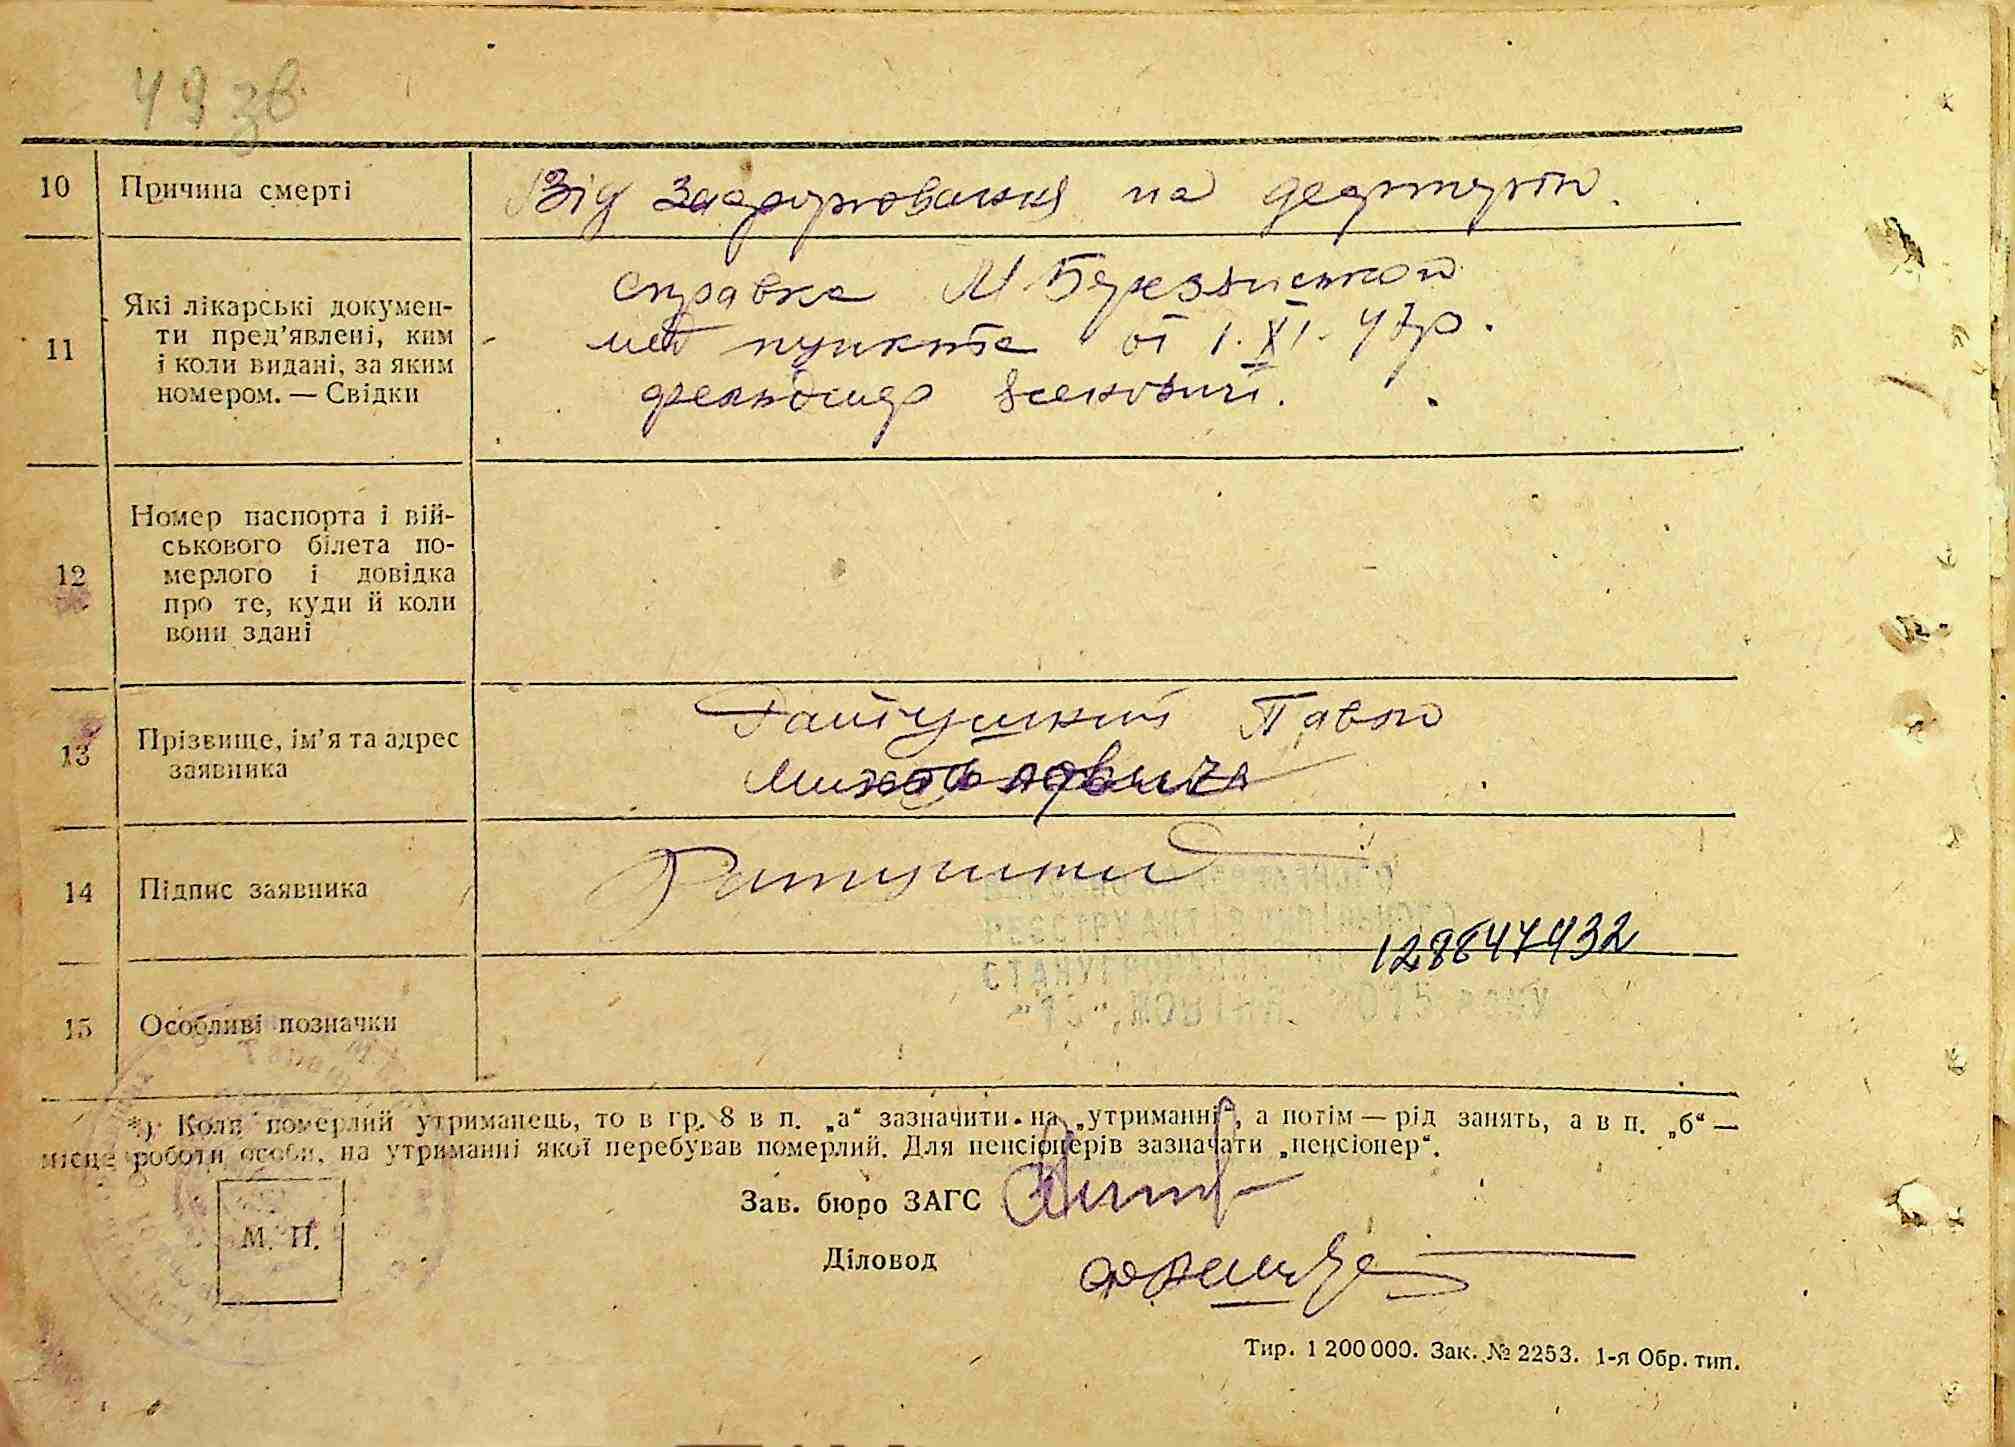 49 зв
10 Причина смерті
Від захорювання на дезинтерію.
11 Які лікарські докумен-
ти пред'явлені, ким
і коли видані, за яким
номером. — Свідки
справка М Березянской
мед пункта от 1. XI. 47р.
фельдшер
12 Номер паспорта і вій-
ськового білета по-
мерлого і довідка
про те, куди й коли
вони здані
13 Прізвище, ім'я та адрес
заявника
Павло
14 Підпис заявника
128647432
15 Особливі позначки
*) Коли померлий утриманець, то в гр. 8 в п. „а“ зазначити на „утриманні“, а потім — рід занять, а в п. „б“ —
місце роботи особи, на утриманні якої перебував померлий. Для пенсіонерів зазначати „пенсіонер“.
М. П.
Зав. бюро ЗАГС
Діловод
Тир. 1 200 000. Зак. № 2253. 1-я Обр. тип.